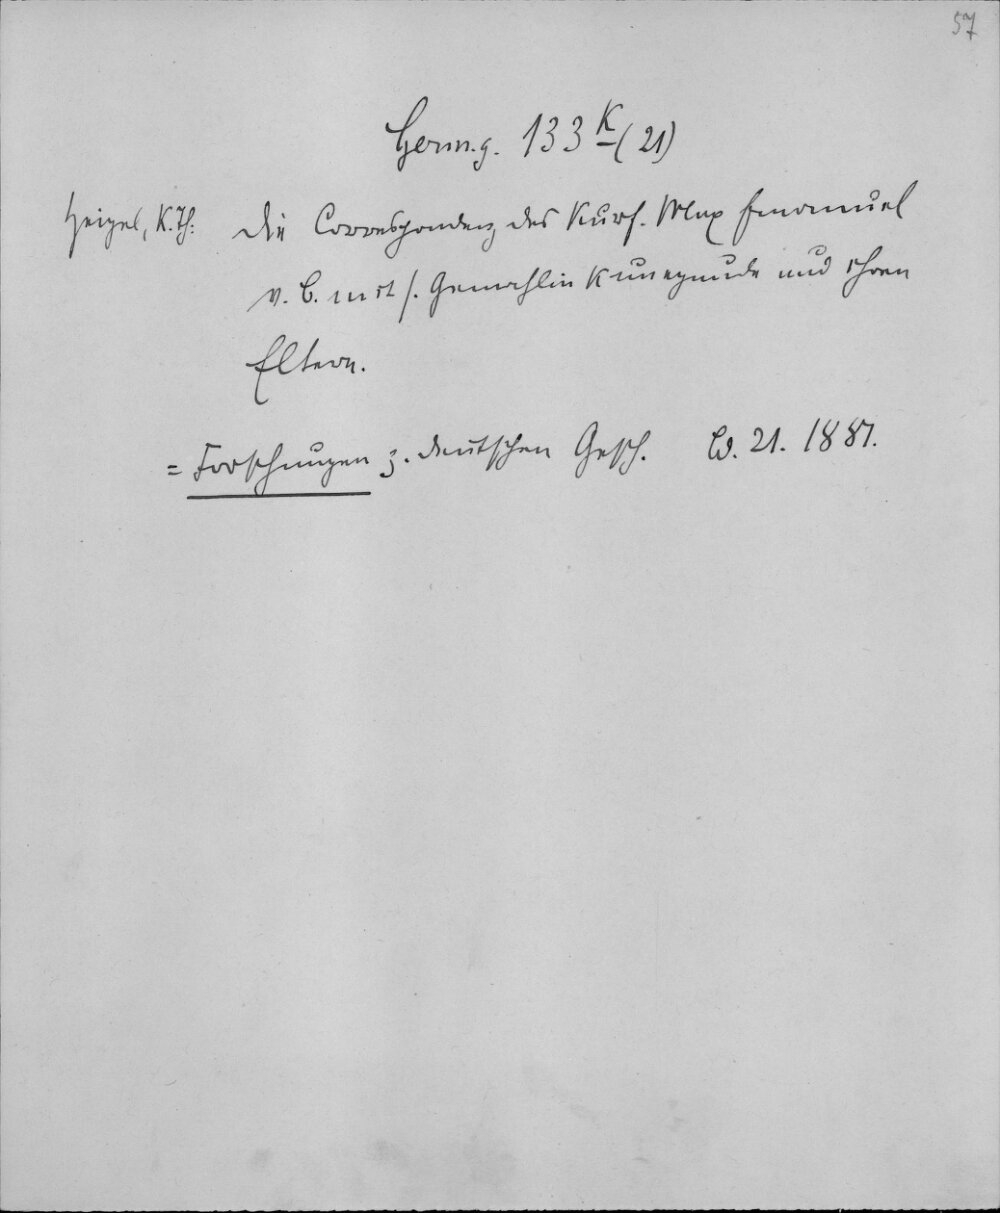 57
Germ.g. 133 K (21)
Heigel, K.Th. Die Correspondenz des Kurf. Max Emanuel
v. B. mit s. Gemahlin Kunegunde und ihren
Eltern.
= Forschungen z. deutschen Gesch. Bd. 21. 1881.